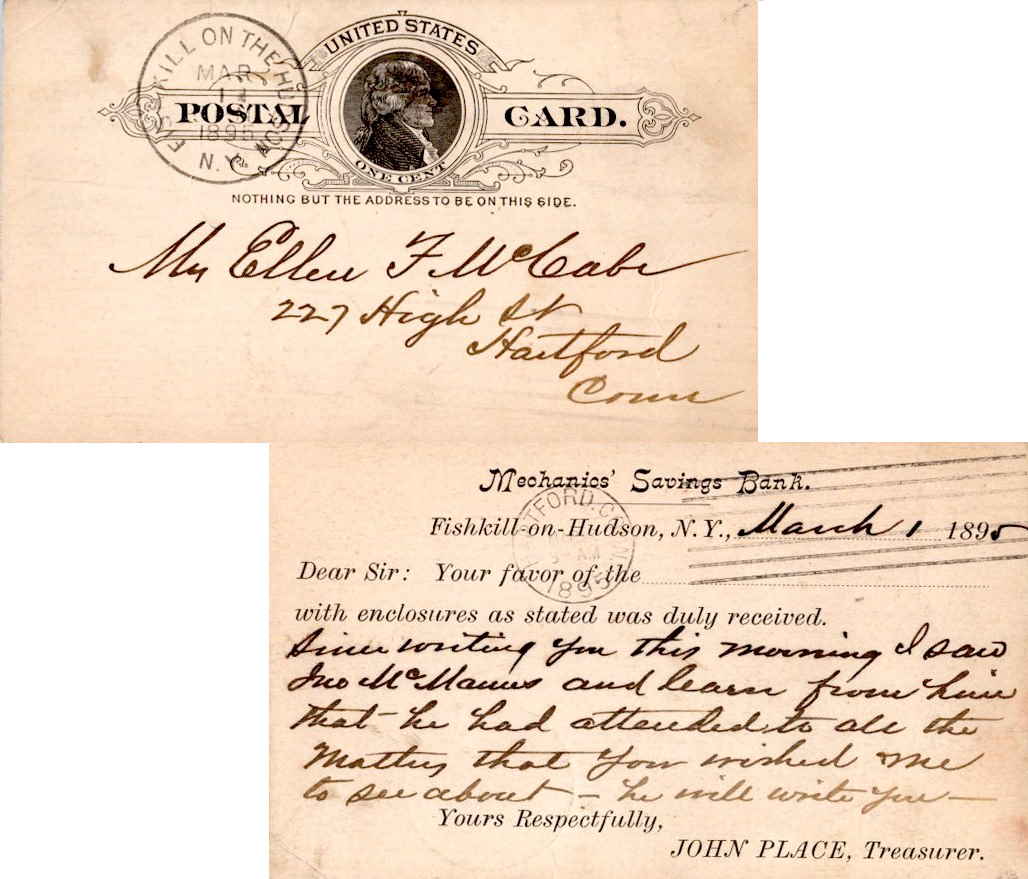 FISHKILL ON THE HUDSON
MAR
1
1895
N.Y.
UNITED STATES
POSTAL CARD.
ONE CENT
NOTHING BUT THE ADDRESS TO BE ON THIS SIDE.
Ellen F McCabe
227 High St
Hartford
Conn
Mechanics' Savings Bank.
HARTFORD. CONN.
AM
1895
Fishkill-on-Hudson, N. Y., March 1 1895
Dear Sir: Your favor of the
with enclosures as stated was duly received.
Since writing you this morning I saw
Jno McManus and learn from him
that he had attended to all the
Matters that you wished me
to see about – he will write you –
Yours Respectfully,
JOHN PLACE, Treasurer.